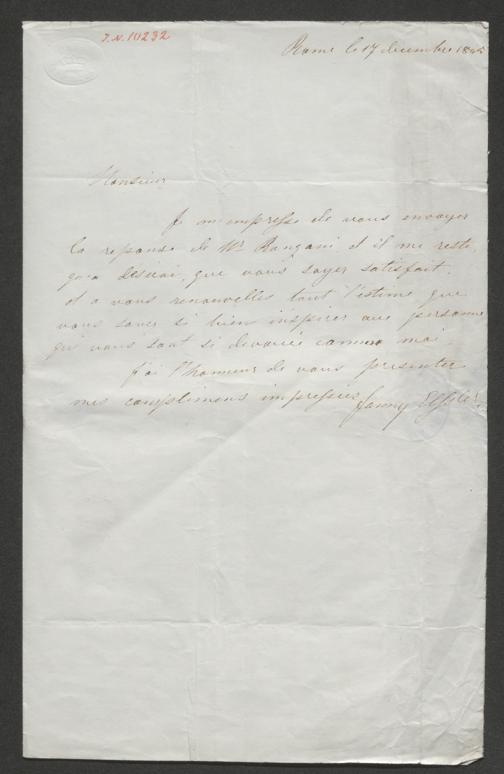 I.N. 10232
Rome le 17 decembre 1845
Monsieur
Je m'empresse de vous envoyer
la reponse de Mr. et il me reste
que desirai, que vous soyez satisfait.
et a vous renouveller tout l'estime que
vous savez si bien inspirer aux personne
qui vous sont si devouée comme moi
J'ai l'honneur de vous presenter
mes complimens impressées Fanny Elssler